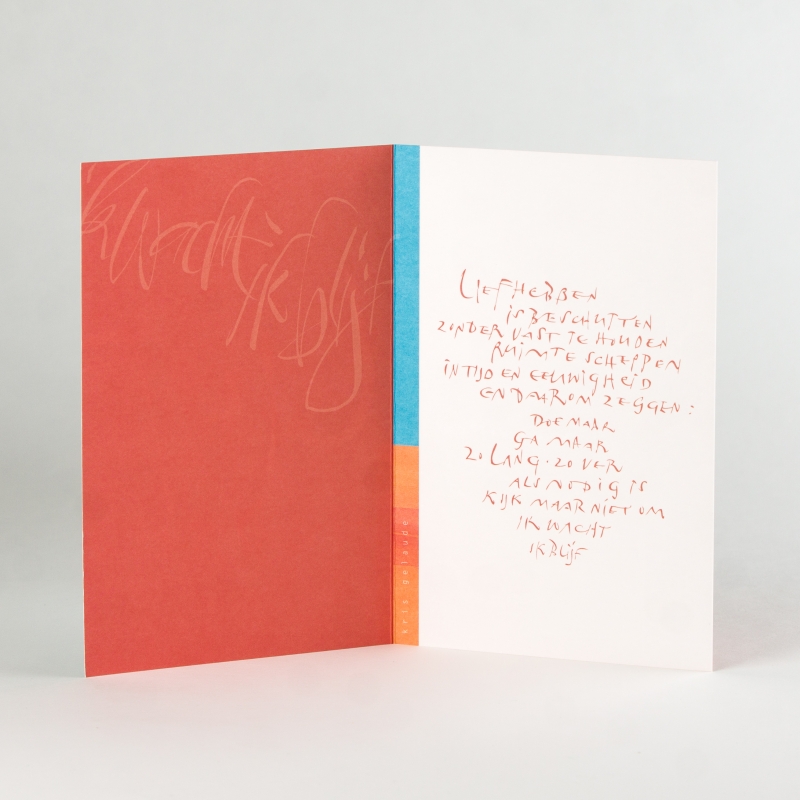 ik wacht
ik blijf
kris gelaude
LIEFHEBBEN
IS BESCHUTTEN
ZONDER VAST TE HOUDEN
RUIMTE SCHEPPEN
IN TIJD EN EEUWIGHEID
EN DAAROM ZEGGEN:
DOE MAAR
GA MAAR
ZO LANG. ZO VER
ALS NODIG IS
KIJK MAAR NIET OM
IK WACHT
IK BLIJF